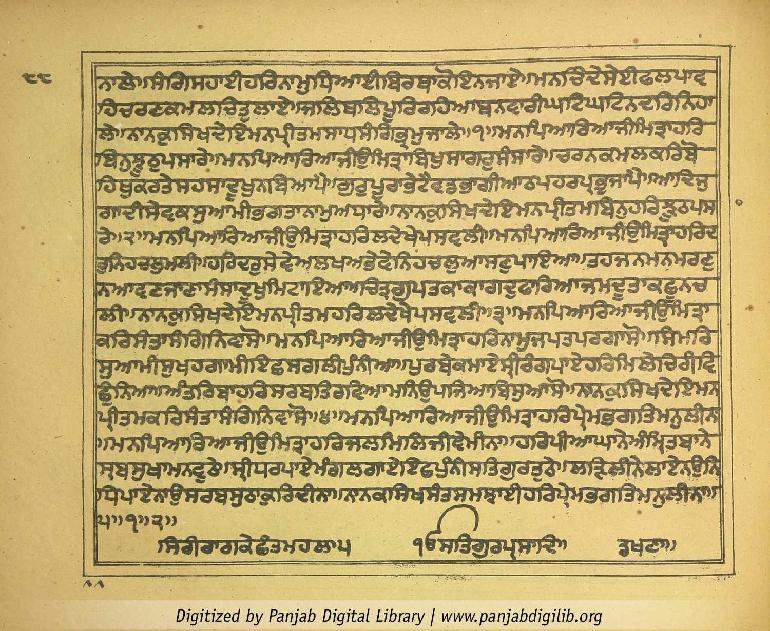 ੮੮
ਨਾਲੇ॥ਸੰਗਿਸਹਾਈਹਰਿਨਾਮੁਧਿਆਈਬਿਰਥਾਕੋਇਨਜਾਏ॥ਮਨਚਿੰਦੇਸੇਈਫਲਪਾਵ
ਹਿਚਰਣਕਮਲਚਿਤੁਲਾਏ॥ਜਲਿਥਲਿਪੂਰਿਰਹਿਆਬਨਵਾਰੀਘਟਿਘਟਿਨਦਰਿਨਿਹਾ
ਲੇ॥ਨਾਨਕੁਸਿਖਦੇਇਮਨਪ੍ਰੀਤਮਸਾਧਸੰਗਿਭ੍ਰਮੁਜਾਲੇ॥੧॥ਮਨਪਿਆਰਿਆਜੀਮਿਤ੍ਰਾਹਰਿ
ਬਿਨੁਝੂਠੁਪਸਾਰੇ॥ਮਨਪਿਆਰਿਆਜੀਉਮਿਤ੍ਰਾਬਿਖੁਸਾਗਰੁਸੰਸਾਰੇ॥ਚਰਨਕਮਲਕਰਿਬੋ
ਹਿਥੁਕਰਤੇਸਹਸਾਦੂਖੁਨਬਿਆਪੈ॥ਗੁਰੁਪੂਰਾਭੇਟੈਵਡਭਾਗੀਆਠਪਹਰਪ੍ਰਭੁਜਾਪੈ॥ਆਦਿਜੁ
ਗਾਦੀਸੇਵਕਸੁਆਮੀਭਗਤਾਨਾਮੁਅਧਾਰੇ॥ਨਾਨਕੁਸਿਖਦੇਇਮਨਪ੍ਰੀਤਮਬਿਨੁਹਰਿਝੂਠਪਸਾ
ਰੇ॥੨॥ਮਨਪਿਆਰਿਆਜੀਉਮਿਤ੍ਰਾਹਰਿਲਦੇਖੇਪਸਵਲੀ॥ਮਨਪਿਆਰਿਆਜੀਉਮਿਤ੍ਰਾਹਰਿਦ
ਰੁਨਿਹਚਲੁਮਲੀ॥ਹਰਿਦਰੁਸੇਵੇਅਲਖਅਭੇਵੇਨਿਹਚਲੁਆਸਣੁਪਾਇਆ॥ਤਹਜਨਮਨਮਰਣੁ
ਨਆਵਣਜਾਣਾਸੰਸਾਦੂਖੁਮਿਟਾਇਆ॥ਚਿਤ੍ਰਗੁਪਤਕਾਕਾਗਦੁਫਾਰਿਆਜਮਦੂਤਾਕਛੂਨਚ
ਲੀ॥ਨਾਨਕੁਸਿਖਦੇਇਮਨਪ੍ਰੀਤਮਹਰਿਲਦੇਖੇਪਸਵਲੀ॥੩॥ਮਨਪਿਆਰਿਆਜੀਉਮਿਤ੍ਰਾ
ਕਰਿਸੰਤਾਸੰਗਿਨਿਵਾਸੋ॥ਮਨਪਿਆਰਿਆਜੀਉਮਿਤ੍ਰਾਹਰਿਨਾਮੁਜਪਤਪਰਗਾਸੋ॥ਸਿਮਰਿ
ਸੁਆਮੀਸੁਖਹਗਾਮੀਇਛਸਗਲੀਪੁੰਨੀਆ॥ਪੁਰਬੇਕਮਾਏਸ੍ਰੀਰੰਗਪਾਏਹਰਿਮਿਲੇਚਿਰੀਵਿ
ਛੁੰਨਿਆ॥ਅੰਤਰਿਬਾਹਰਿਸਰਬਤਿਰਵਿਆਮਨਿਉਪਜਿਆਬਿਸੁਆਸੋ॥ਨਾਨਕੁਸਿਖਦੇਇਮਨ
ਪ੍ਰੀਤਮਕਰਿਸੰਤਾਸੰਗਿਨਿਵਾਸੋ॥੪॥ਮਨਪਿਆਰਿਆਜੀਉਮਿਤ੍ਰਾਹਰਿਪ੍ਰੇਮਭਗਤਿਮਨੁਲੀਨਾ
॥ਮਨਪਿਆਰਿਆਜੀਉਮਿਤ੍ਰਾਹਰਿਜਲਮਿਲਿਜੀਵੇਮੀਨਾ॥ਹਰਿਪੀਆਘਾਨੇਅੰਮ੍ਰਿਤਬਾਨੇ
ਸ੍ਰਬਸੁਖਾਮਨਵੁਠੇ॥ਸ੍ਰੀਧਰਪਾਏਮੰਗਲਗਾਏਇਛਪੁੰਨੀਸਤਿਗੁਰਤੁਠੇ॥ਲੜਿਲੀਨੇਲਾਏਨਉਨਿ
ਧਿਪਾਏਨਾਉਸਰਬਸੁਠਾਕੁਰਿਦੀਨਾ॥ਨਾਨਕਸਿਖਸੰਤਸਮਝਾਈਹਰਿਪ੍ਰੇਮਭਗਤਿਮਨੁਲੀਨਾ॥
੫॥੧॥੨॥
ਸਿਰੀਰਾਗਕੇਛੰਤਮਹਲਾ੫ ੴਸਤਿਗੁਰਪ੍ਰਸਾਦਿ॥ ਡਖਣਾ॥
Digitized by Panjab Digital Library | www.panjabdigilib.org